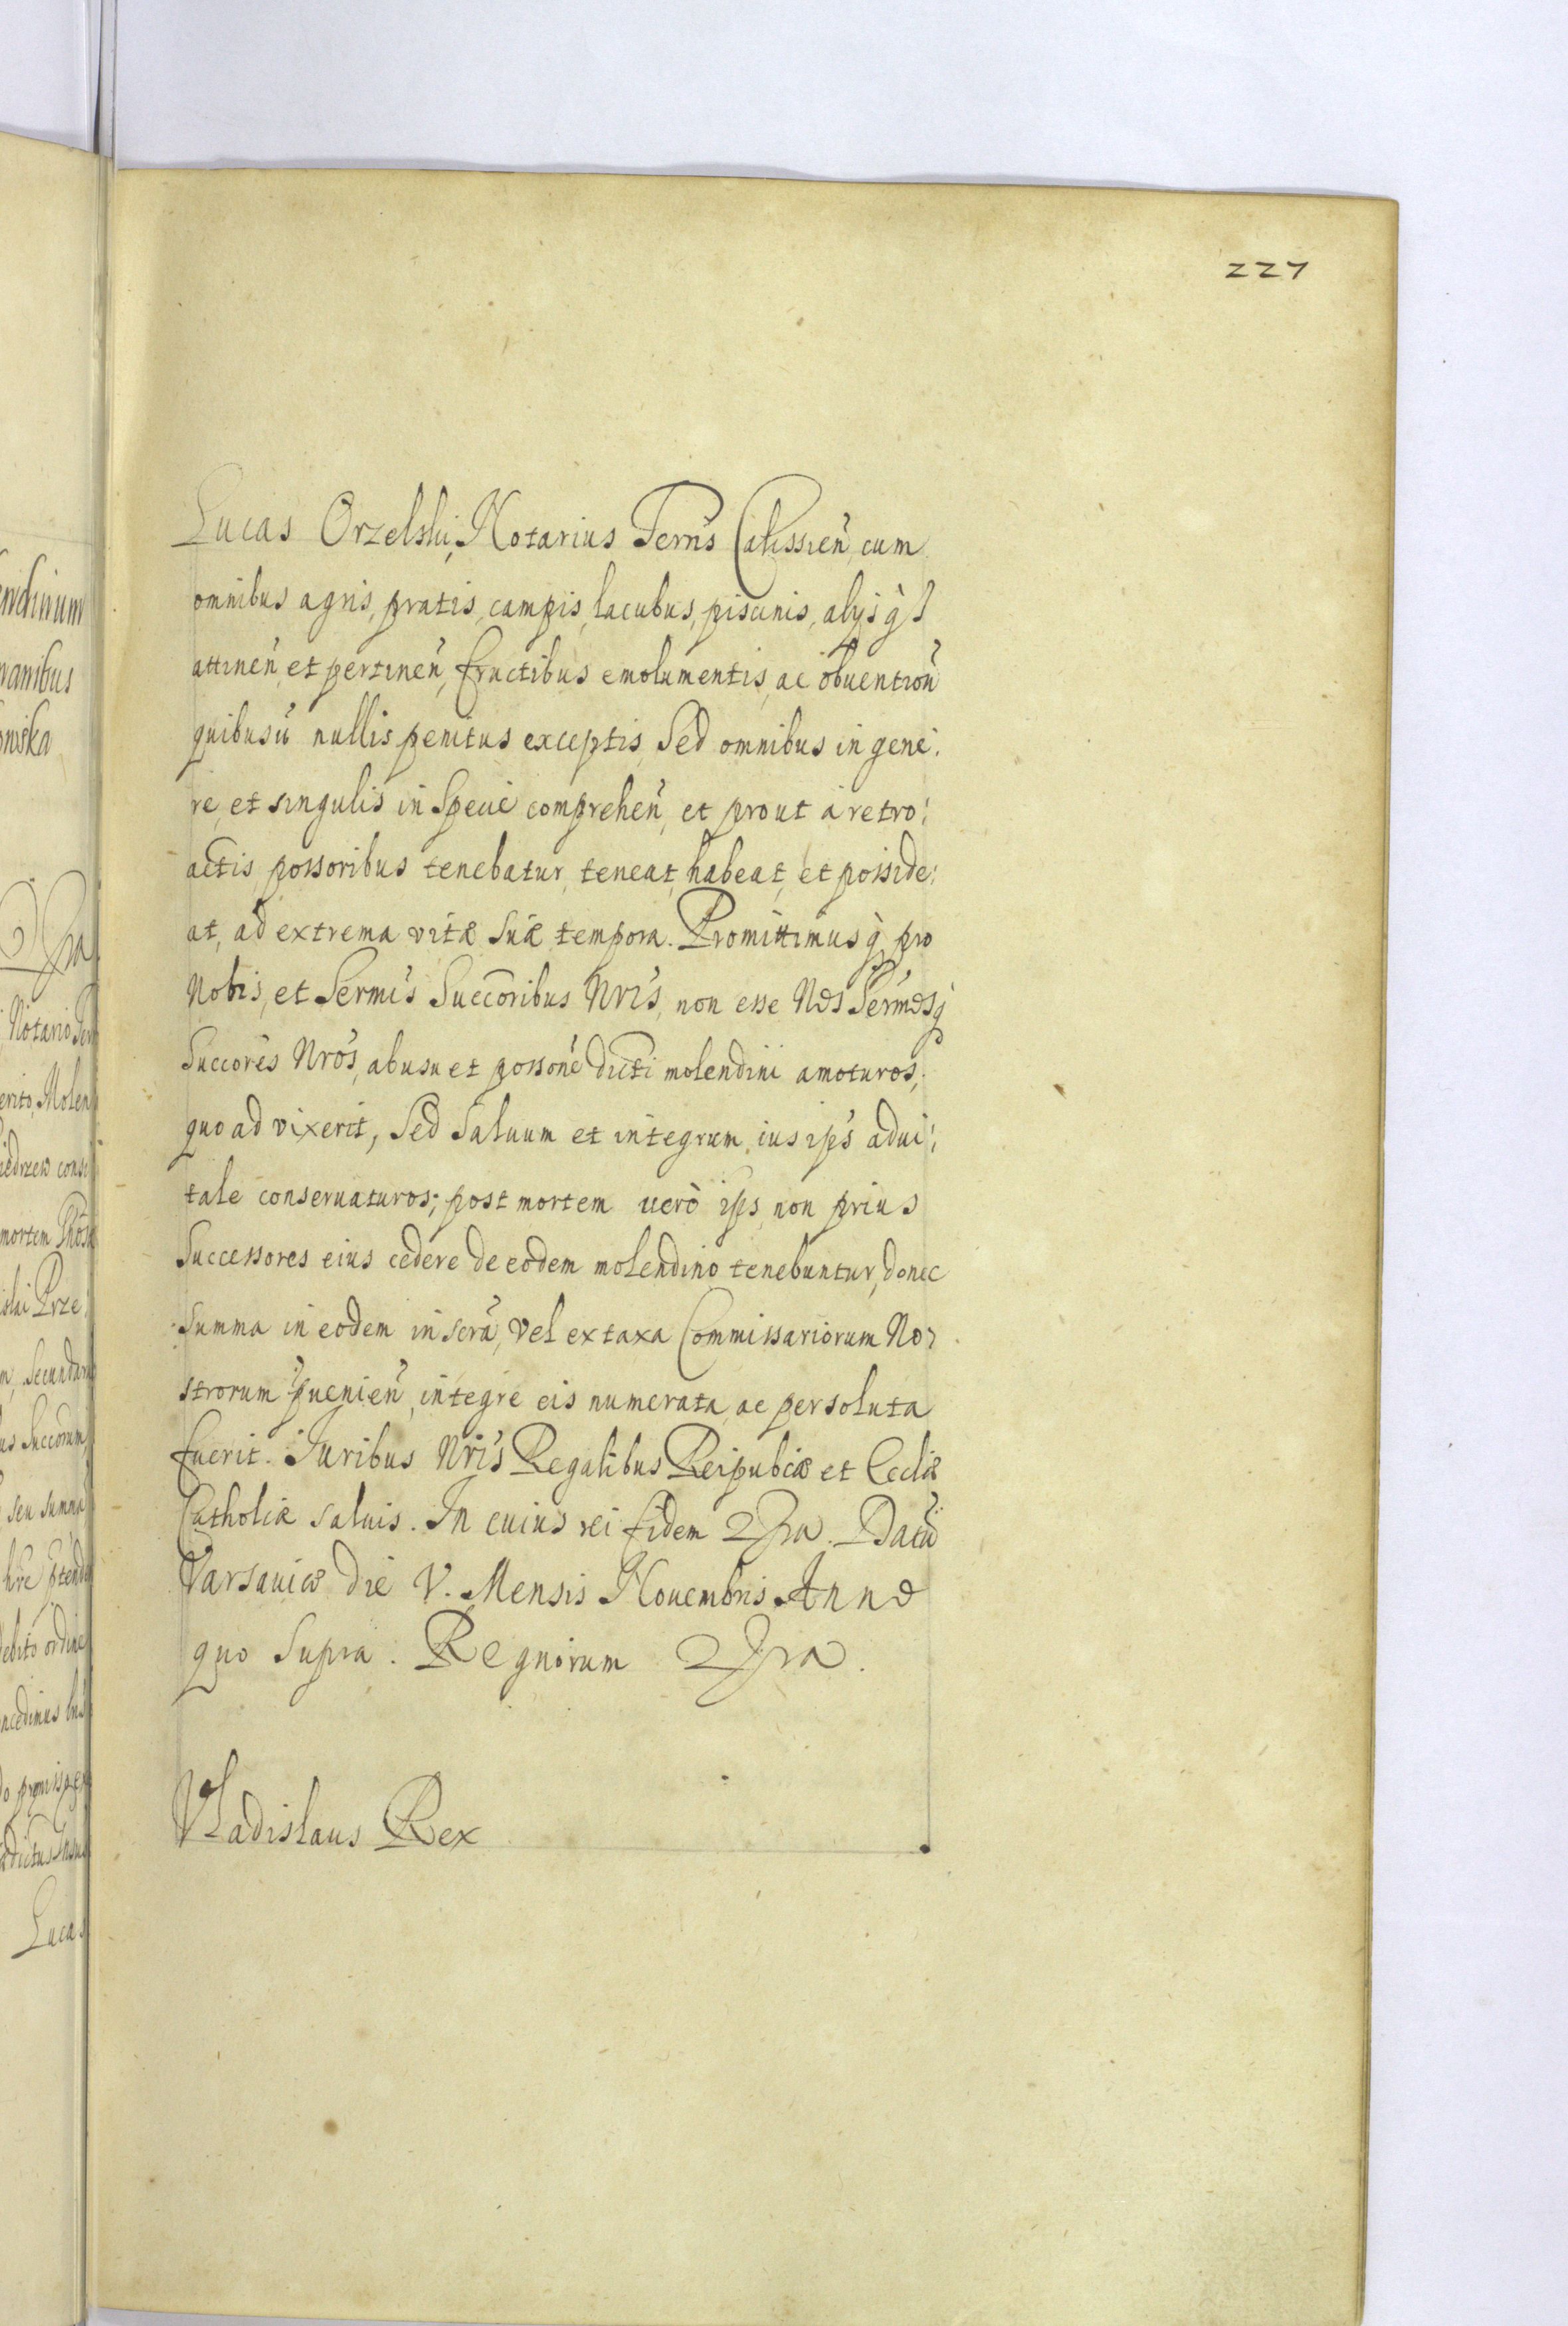 227
Lucas Orzelski, Notarius Terrıs Calissien̄, cum
omnibus agris, pratis, campis, lacubus, piscinis, alijsq́
attinen̄, et pertinen̄, fructibus emolumentis, ac obuention̄
quibusū nullis penitus exceptis, Sed omnibus in gene:
re, et singulis in Specie comprehen̄, et prout à retro:
actis possoribus tenebatur, teneat, habeat, et posside:
at, ad extrema vitæ suæ tempora. Promittimusq́ pro
Nobis, et Sermıs Succoribus Nrıs, non esse Nos Sermosq́
Succores Nros, ab usu et possone dicti molendini amoturos,
quo ad vixerit, Sed Saluum et integrum ius ips adui:
tale conseruaturos; post mortem verò ips, non prius
Successores eius cedere de eodem molendino tenebuntur, donec
Summa in eodem inscra, Vel ex taxa Commissariorum No:
strorum puenien̄, integre eis numerata, ac persoluta
fuerit. Iuribus Nrıs Regalibus Reipubcæ et Ecclæ
Catholicæ saluis. In cuius rei fidem &ra. Datū
Varsauiæ die V. Mensis Nouembris Anno
quo Supra. Regnorum &ra.
Vladislaus Rex
endinum
manibus
owska
&ra
Notario Ter
erito, Molen
iedrzew cons
mortem
islai Prze
m, Secundum
us Succorum
seu summa
hre
debito ordine
ncedimus
dictus
Lucas